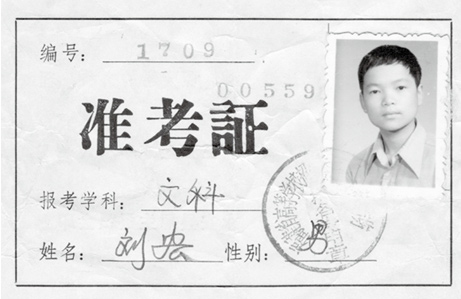 编号：1709
00559
准考証
报考学科：文科
姓名：刘宏 性别：男